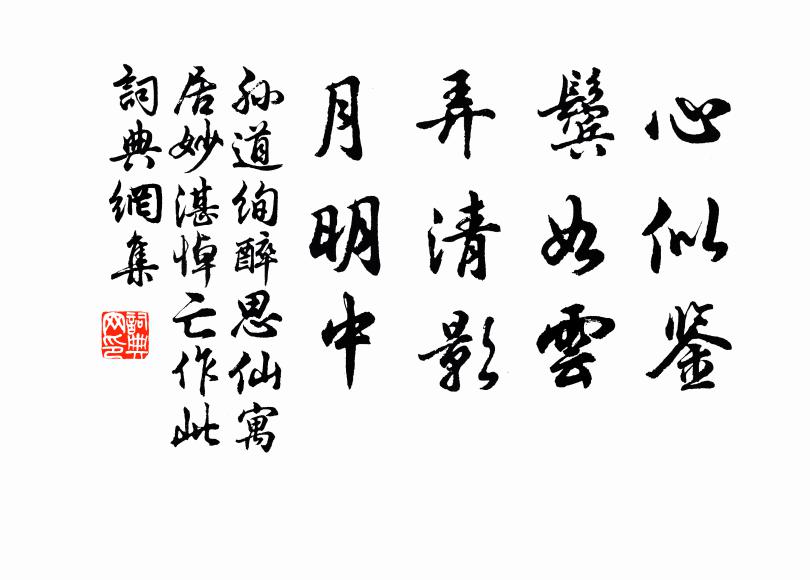 心似鉴
鬓如雲
弄清影
月明中
孙道绚醉思仙寓
居妙湛悼亡作此
詞典網集
詞典
网印